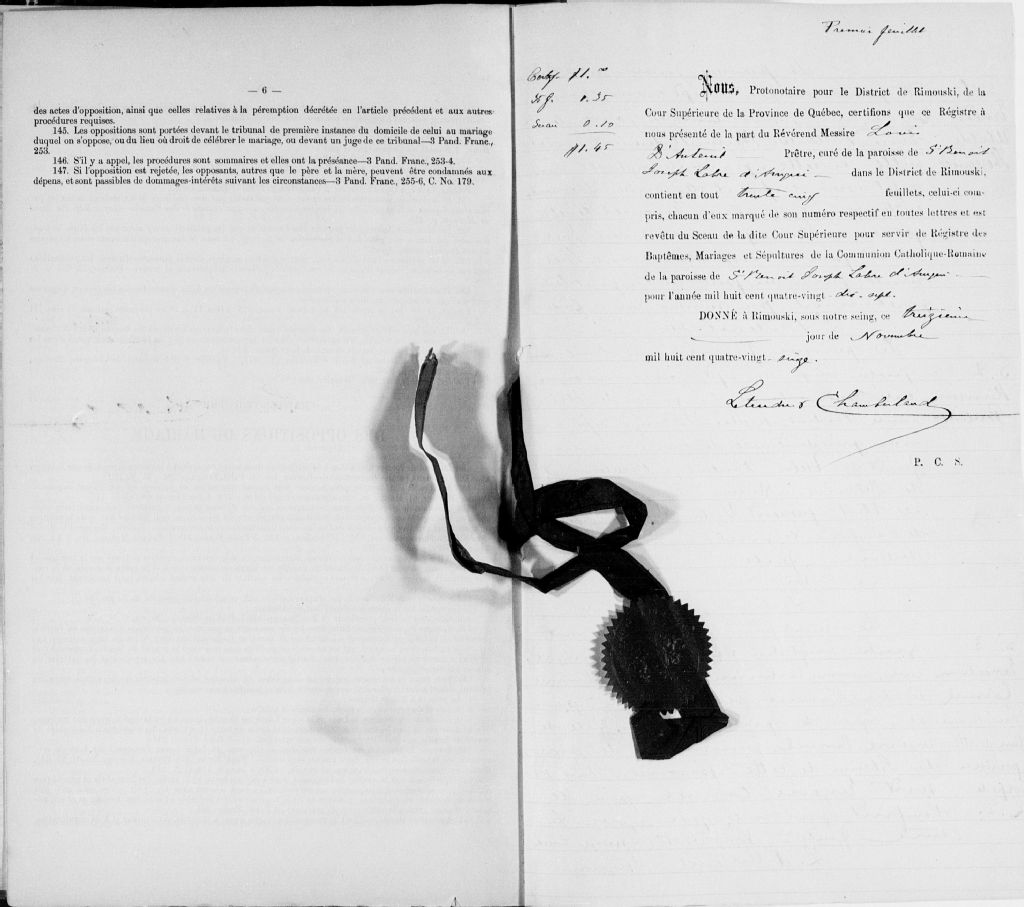 — 6 —
des actes d'opposition, ainsi que celles relatives à la péremption décrétée en l'article précédent et aux autres
procédures requises.
145. Les oppositions sont portées devant le tribunal de première instance du domicile de celui au mariage
duquel on s'oppose, ou du lieu où droit de célébrer le mariage, ou devant un juge de ce tribunal—3 Pand. Franc.,
253.
146. S'il y a appel, les procédures sont sommaires et elles ont la préséance—3 Pand. Franc., 253-4.
147. Si l'opposition est rejetée, les opposants, autres que le père et la mère, peuvent être condamnés aux
dépens, et sont passibles de dommages-intérêts suivant les circonstances—3 Pand. Franc., 255-6, C. No. 179.
Premier feuillet
Certif. $1.00
35 f. 0.35
Sceau 0.10
$1.45
Nous, Protonotaire pour le District de Rimouski, de la
Cour Supérieure de la Province de Québec, certifions que ce Régistre à
nous présenté de la part du Révérend Messire Louis
D'Auteuil Prêtre, curé de la paroisse de St Benoit
Joseph Labre d'Amqui — dans le District de Rimouski,
contient en tout trente cinq feuillets, celui-ci com-
pris, chacun d'eux marqué de son numéro respectif en toutes lettres et est
revêtu du Sceau de la dite Cour Supérieure pour servir de Régistre des
Baptêmes, Mariages et Sépultures de la Communion Catholique-Romaine
de la paroisse de St Benoit Joseph Labre d'Amqui —
pour l'année mil huit cent quatre-vingt-dix-sept.
DONNÉ à Rimouski, sous notre seing, ce treizième
jour de Novembre
mil huit cent quatre-vingt-seize.
Letendre & Chamberland
P. C. S.